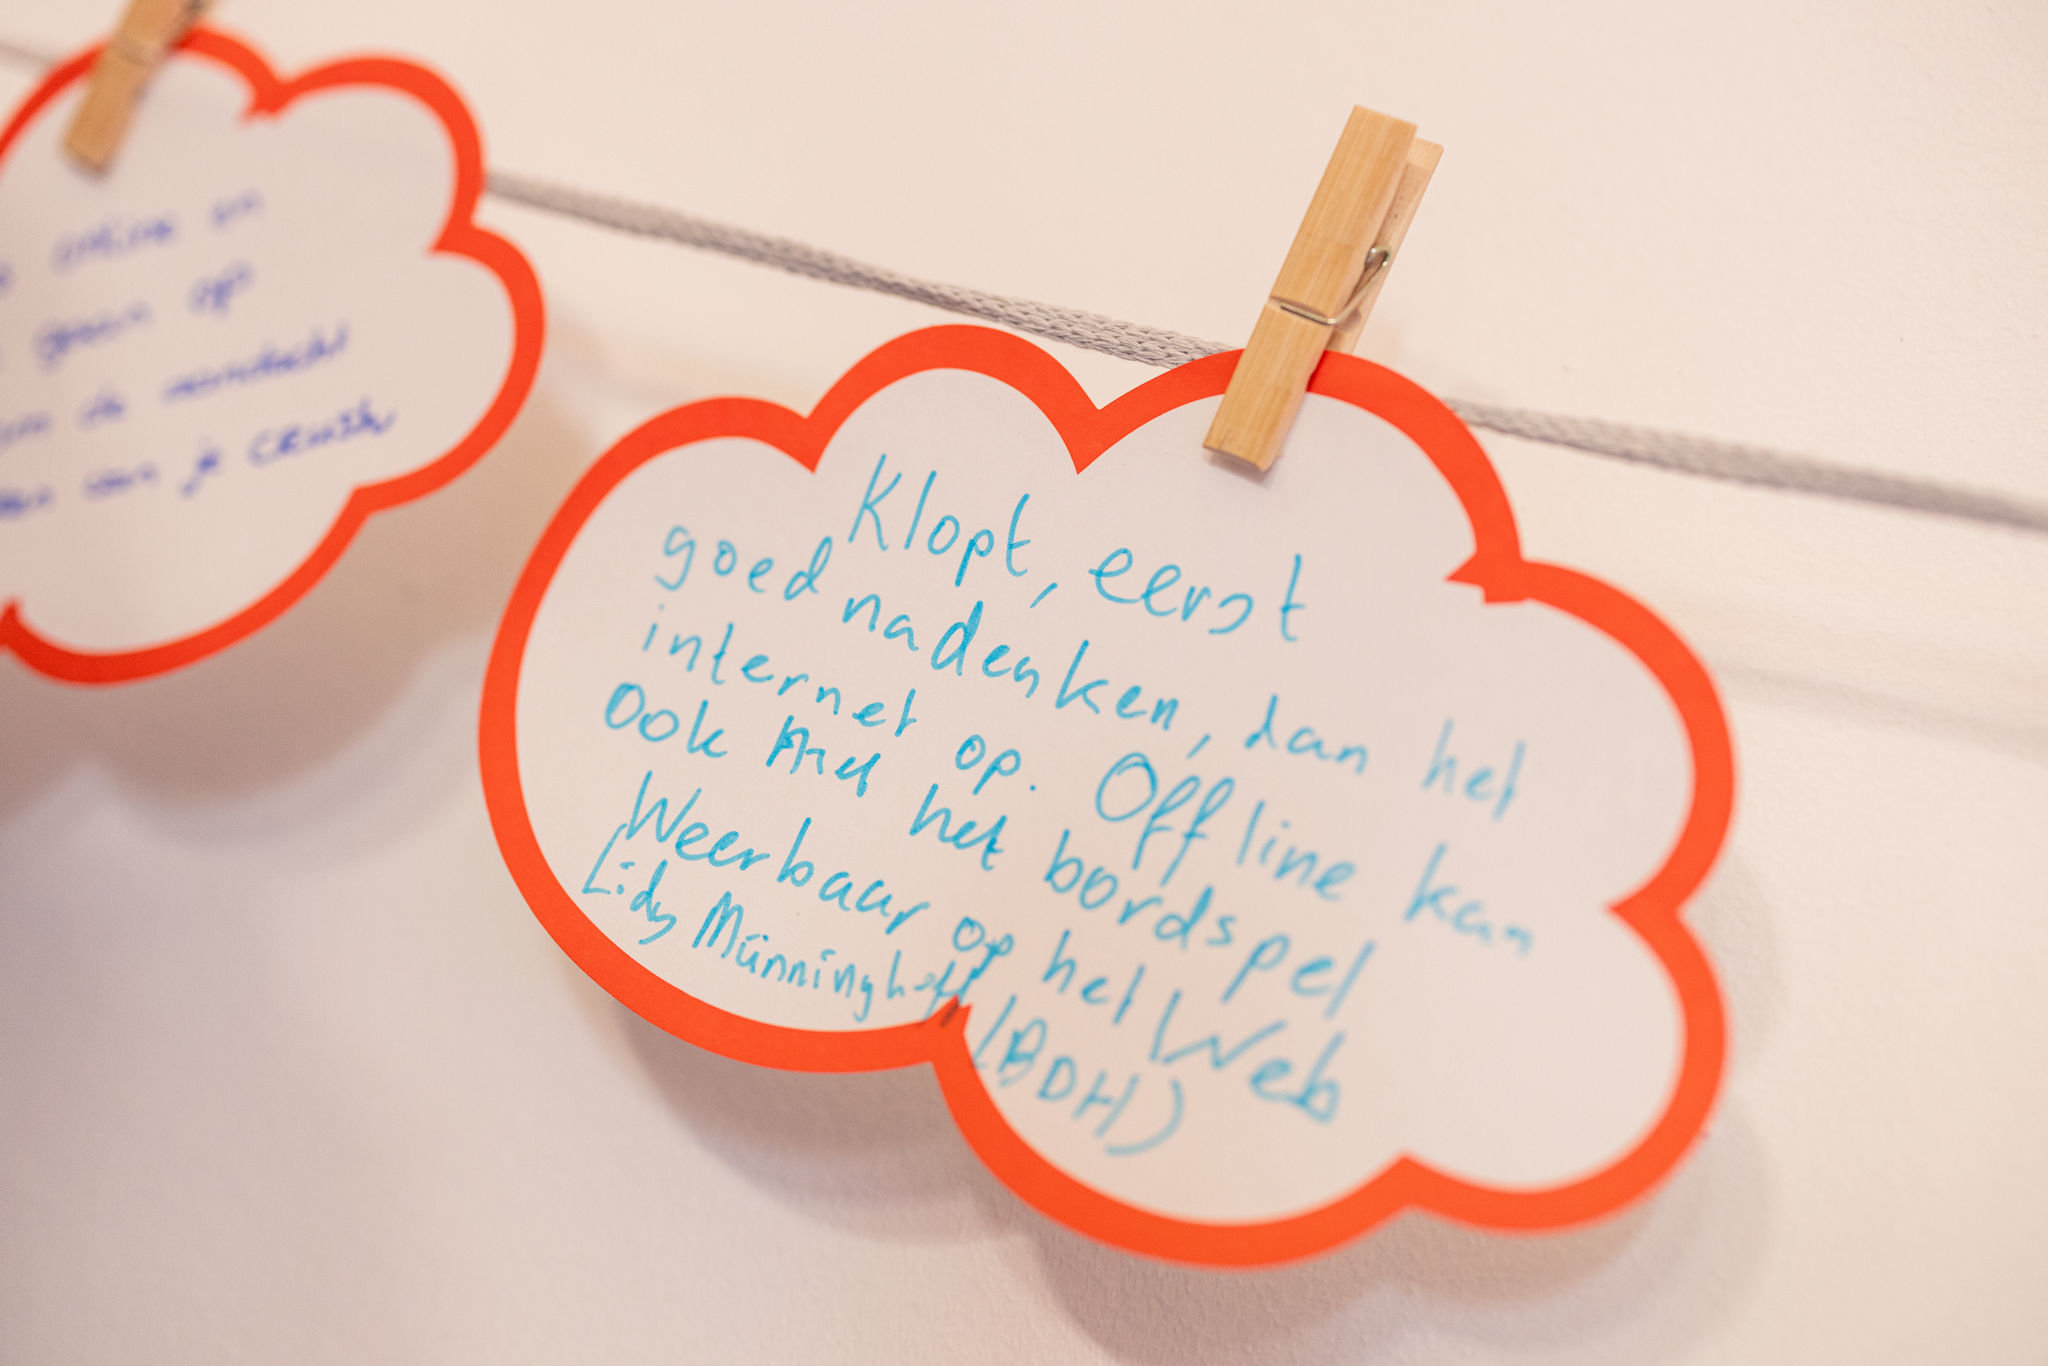 online en
gaan op
om de aandacht
van je CRUSH
Klopt, eerst
goed nadenken, dan het
internet op. Offline kan
ook met het bordspel
Weerbaar op het Web
Lidy Münninghoff (BDH)